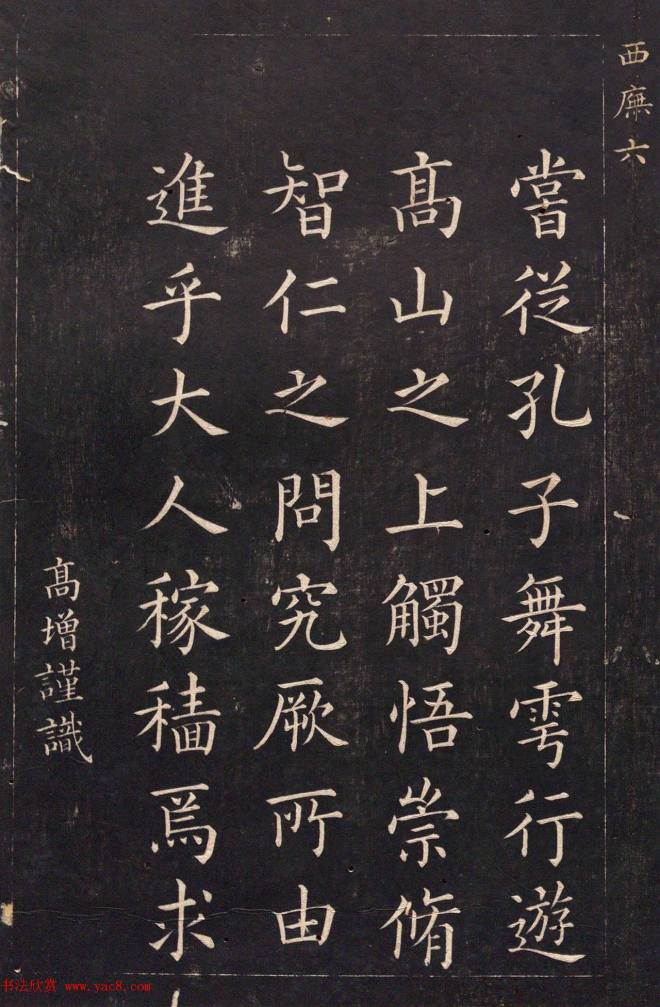 西廡六
嘗從孔子舞雩行遊
髙山之上觸悟崇脩
智仁之問究厥所由
進乎大人稼穡焉求
髙增謹識
书法欣赏 www.yac8.com